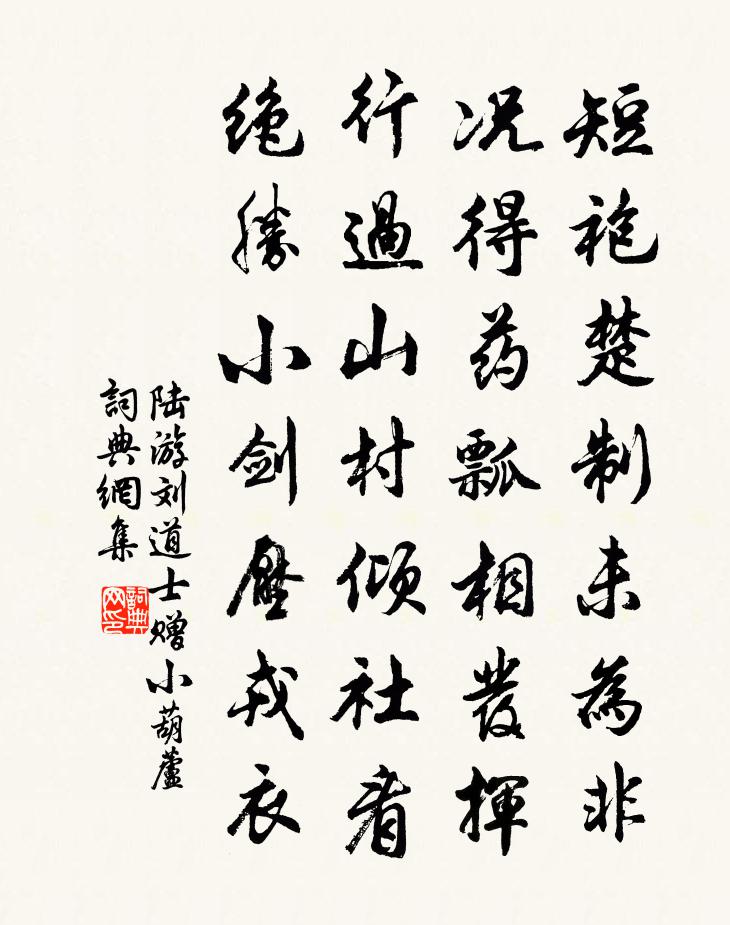 短袍楚制未為非
况得药瓢相發揮
行過山村倾社看
绝勝小剑壓戎衣
陆游刘道士赠小葫蘆
詞典網集
詞典网印